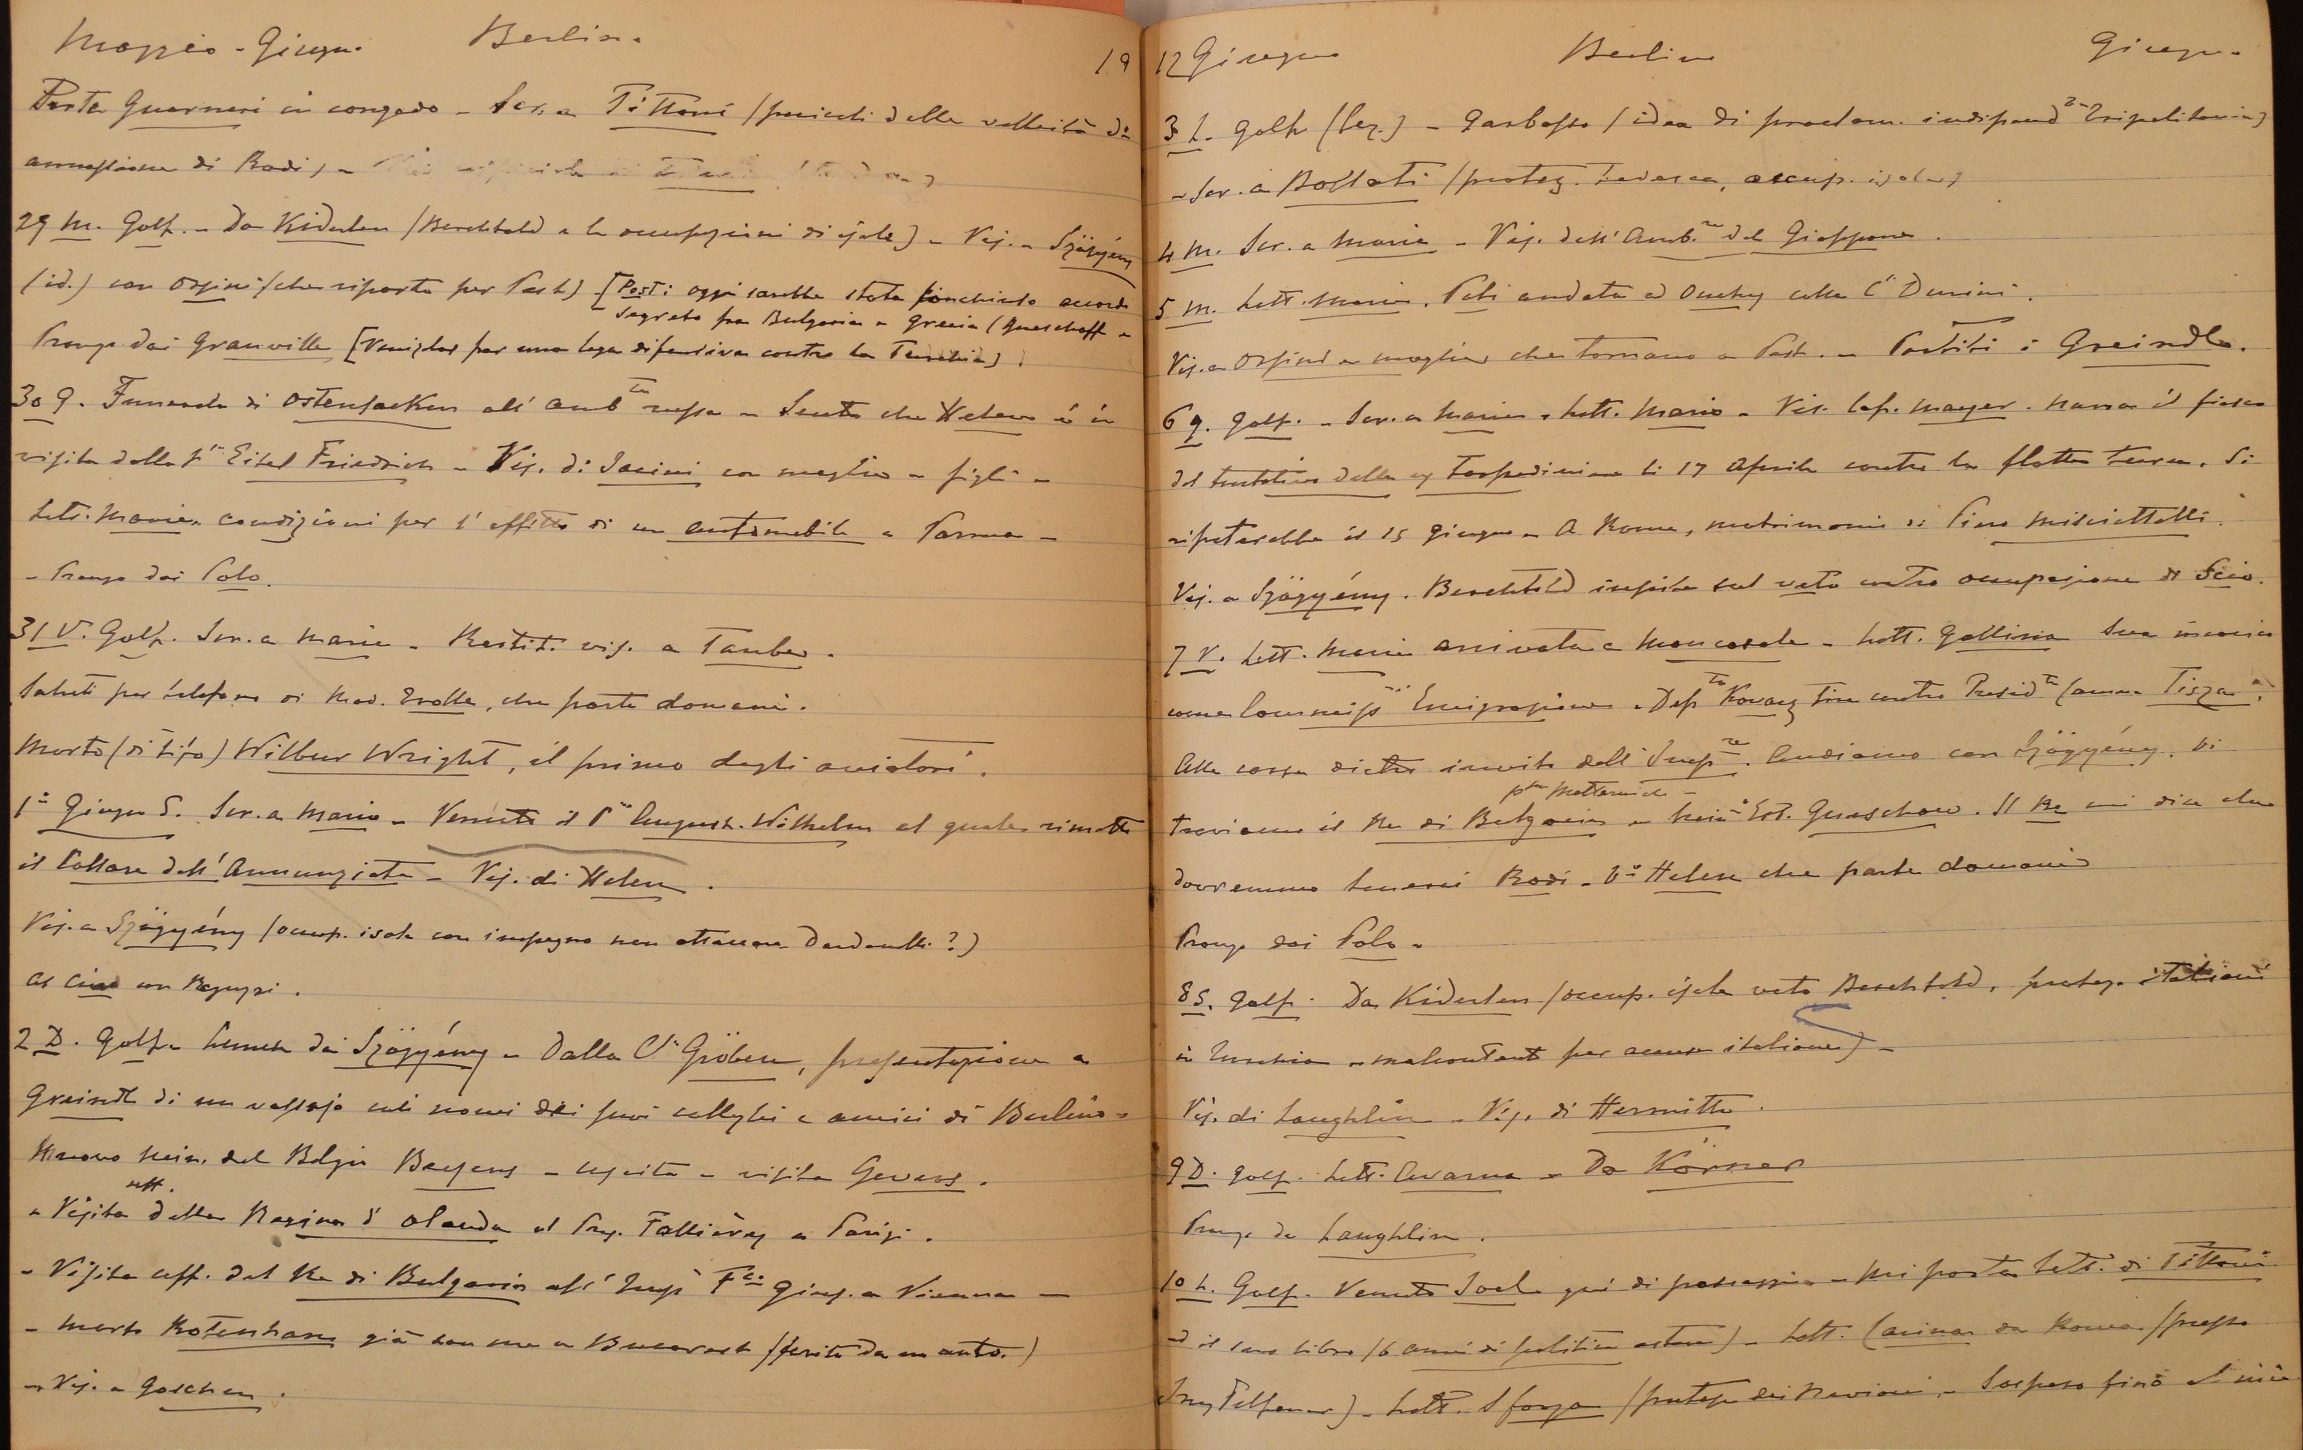 Maggio - Giugno. Berlin. 19
Parte Guarneri in congedo - Scr. a Tittoni (pericoli della velleità di
annessione di Rodi) -
29 M. Golf. - Da Kiderlen (Berchtold e le occupazioni di isole) - Vis. a Szögyény
(id.) con Orsini (che riparte per Pest) - [Post: oggi sarebbe stato conchiuso accordo
segreto fra Bulgaria e Grecia (Gueschoff e
Pranzo dai Granville [Venizelos per una lega difensiva contro la Turchia)]
30 G. Funerale di Ostensacken all' Amb.ta russa - Sento che Helene è in
visita dalla P.ssa Eitel Friedrich - Vis. di Jacini con moglie e figli -
Lett. Marie condizioni per l'affitto di un automobile a Parma -
- Pranzo dai Polo.
31 V. Golf. Scr. a Marie - Restit. vis. a Tauber.
Saluti per telefono di Mad. Trolle, che parte domani.
Morto (di tifo) Wilbur Wright, il primo degli aviatori.
1° Giugno S. Scr. a Marie - Venuto il P.pe August. Wilhelm al quale rimetto
il Collare dell' Annunziata - Vis. di Helene.
Vis. a Szögyény (occup. isole con impegno non attaccare Dardanelli?)
Al Cine con
2 D. Golf. Lunch dai Szögyény - Dalla C.ssa Gröben, presentazione a
Greindl di un vassojo coi nomi dei suoi colleghi e amici di Berlino -
Nuovo Min. del Belgio Beyens - uscita - visita Gevers.
uff.
- Visita della Regina d' Olanda al Pres. Fallières a Parigi.
- Visita uff. del Re di Bulgaria all' Imp. F.co Gius. a Vienna -
- Morto Rotenhan già con me a Bucarest (ferito da un auto.)
- Vis. a Goschen.
12 Giugno Berlin Giugno.
3 L. Golf (lez.) - Garbasso (idea di proclam. indipend.za Tripolitania)
- Scr. a Bollati (protez. tedesca, occup. isole)
4 M. Scr. a Marie - Vis. dell' Amb.re del Giappone.
5 M. Lett. Marie. andata ad Ouchy colla C.ssa Durini.
Vis. a Orsini e moglie che tornano a Pest. - Partiti i Greindl.
6 G. Golf. - Scr. a Marie. Lett. Mario - Vis. Cap. Mayer. Narra il fiasco
del tentativo delle 17 Aprile contro la flotta turca. Si
ripeterebbe il 15 giugno - A Roma, matrimonio di Piero Misciattelli.
Vis. a Szögyény. Berchtold insiste sul veto contro occupazione di Scio.
7 V. Lett. Marie arrivata a Moncasale - Lett. Gallina Sua incarico
come Commiss. Emigrazione - Dep.to Kovacs tira contro Presid.te Camera Tisza.
Alle corse dietro invito dell' Imp.re. Andiamo con Szögyény. Vi
p.pe Metternich -
troviamo il Re di Bulgaria e Min.° Est. Gueschow. Il Re mi dice che
dovremmo tenerci Rodi - V.° Helene che parte domani
Pranzo dai Polo.
8 S. Golf. Da Kiderlen (occup. isole veto Berchtold, protez. italiani
in Turchia - malcontent per accuse italiane) -
Vis. di Laughlin - Vis. di Hermitte.
9 D. Golf. Lett. Avarna - Da Körner
Pranzo da Laughlin.
10 L. Golf. Venuto Joel qui di passaggio - Mi porta lett. di Tittoni
ed il suo libro (6 anni di politica estera) - Lett. Carina da Roma (presso
Telfener) - Lett. Sforza (protez. dei - Sospeso fino al mio